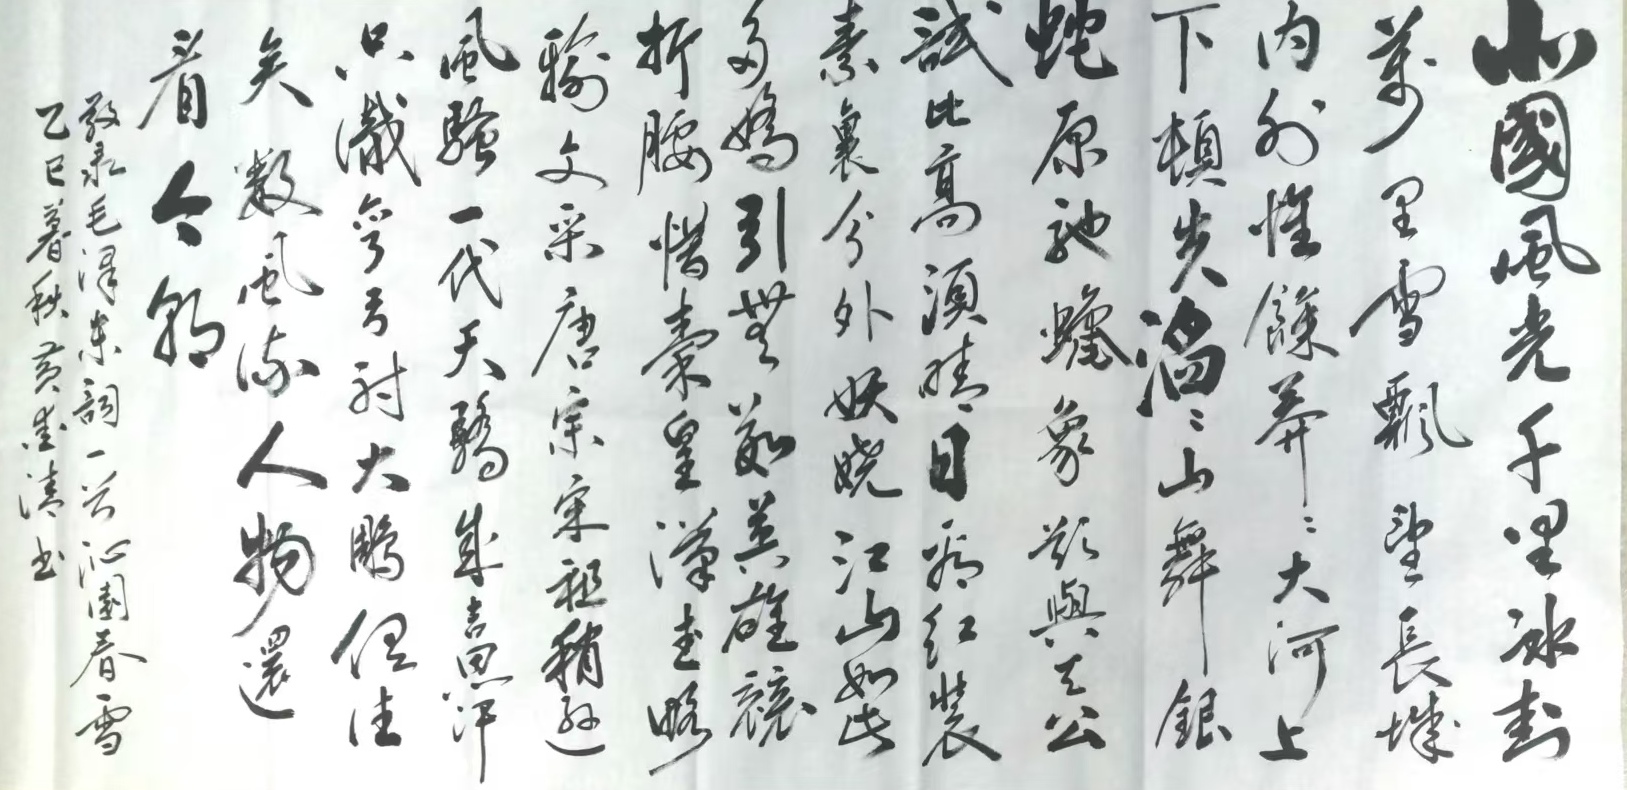 北國風光千里冰封
萬里雪飄望長城
内外惟餘莽〻大河上
下頓失滔〻山舞銀
蛇原馳蠟象欲與天公
試比高須晴日看红裝
素裹分外妖娆江山如此
多嬌引無數英雄競
折腰惜秦皇漢武略
輸文采唐宗宋祖稍遜
風騷一代天驕成吉思汗
只識彎弓射大鵰俱往
矣數風流人物還
看今朝
敬录毛澤東詞一首沁園春雪
乙巳暮秋黄清书